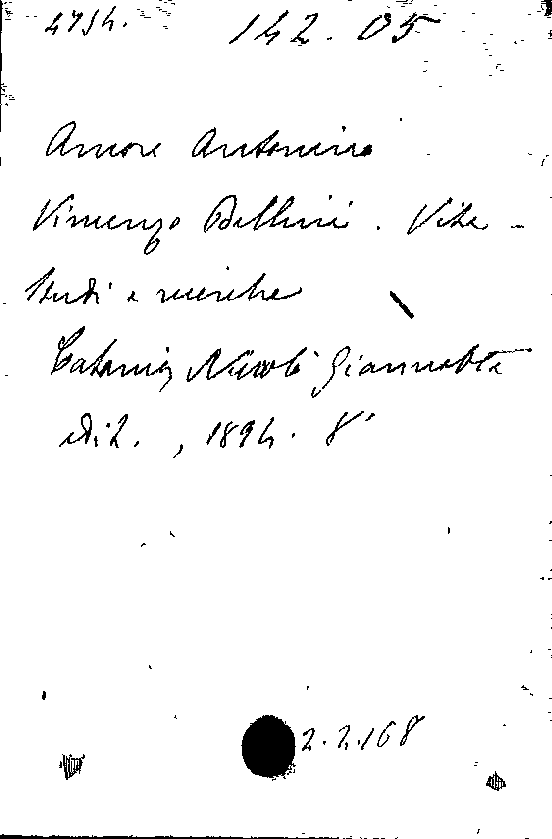 4754. 142.05
Amore Antonino
Vincenzo Bellini. Vita -
Studi e ricerche
Catania, Nicolò Giannotta
Edit., 1894. 8°
2.2.168